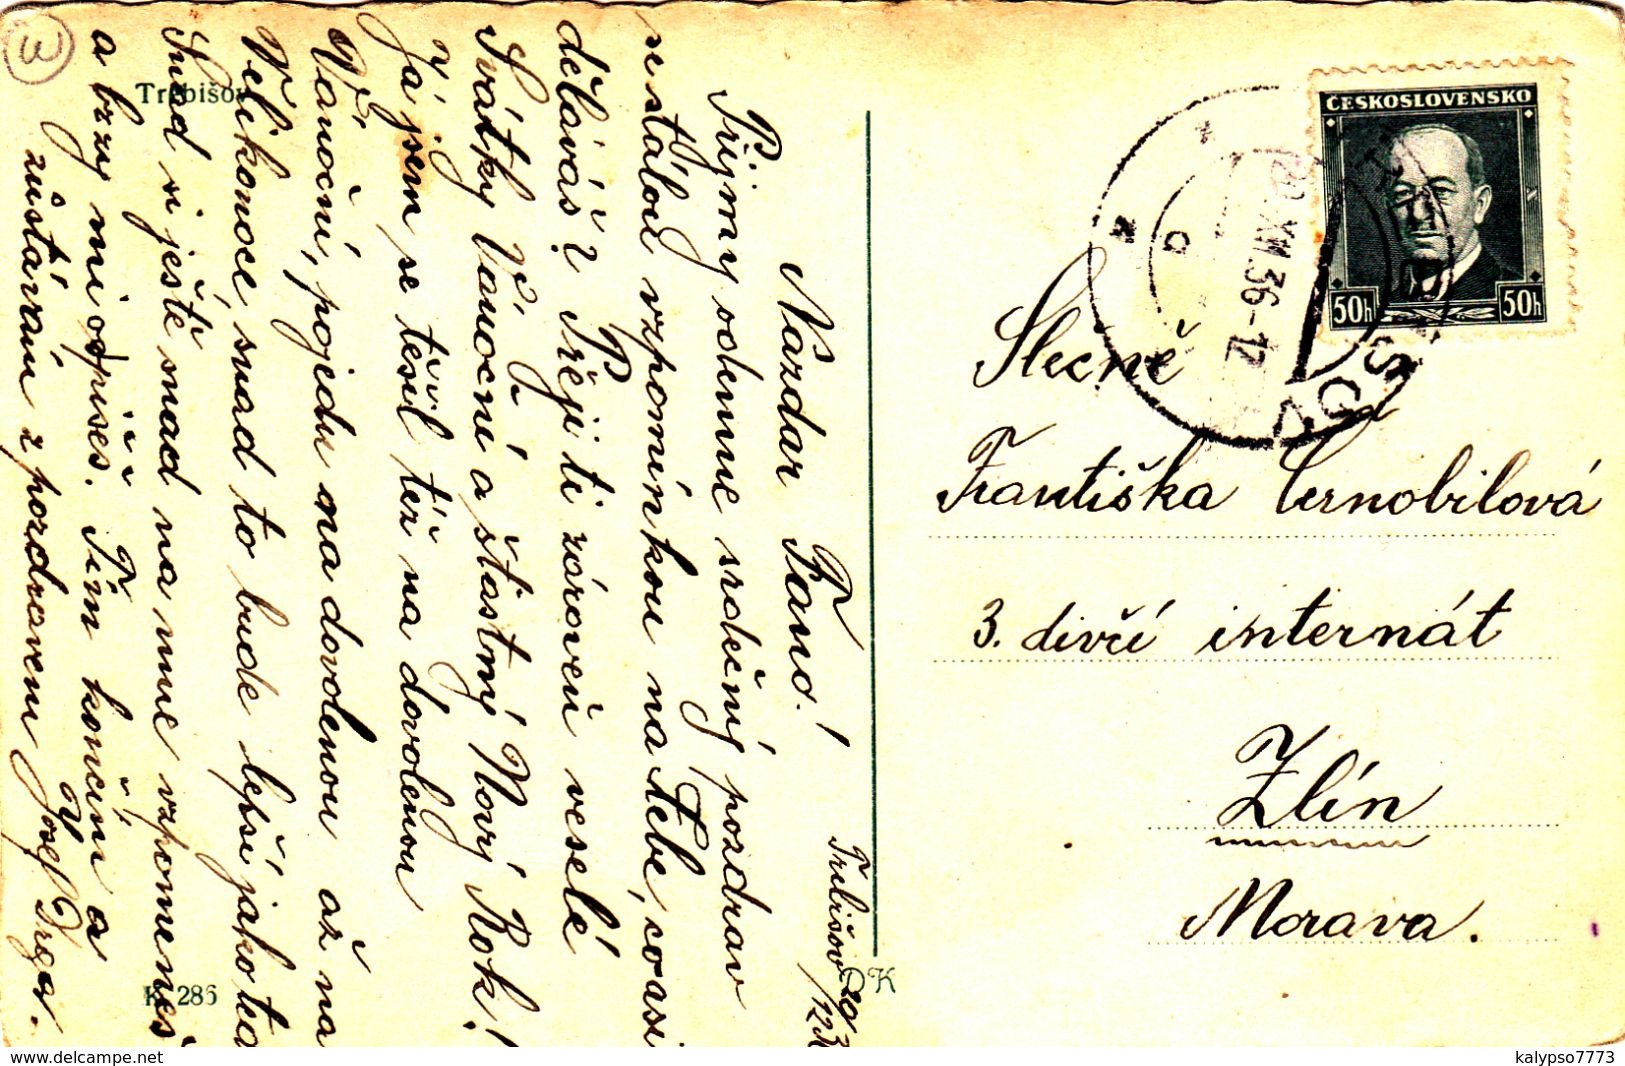 Trebišov
Třebišov 20/12 36
Nazdar Fano!
Přijmy odemne srdečný pozdrav
se stálou vzpomínkou na tebe, co asi
děláváš? Přeji ti zároveň veselé
Svátky Vánoční a štastný Nový Rok!
Já jsem se těšil též na dovolenou
Vánoční, pojedu na dovolenou až na
Velikonoce, snad to bude lepší jako teď
Snad si ještě snad na mne vzpomeneš
a brzy mi odpíšeš. Tím končím a
zůstávám z pozdravem Josef Drgar.
K. 286
DK
ČESKOSLOVENSKO
50h 50h
20.XII.36-12
Slečně
Františka Černobilová
3. divčí internát
Zlín
Morava.
kalypso7773
delcampe.net